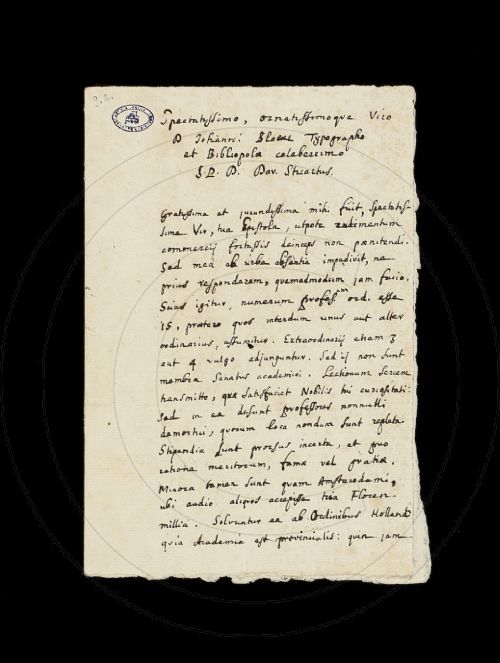 Spectatissimo, ornatissimoque Viro
D Iohanni Blaeu Typographo
et Bibliopolæ celeberrimo
S. P. D. Dav. Stuartus.
Gratissima et jucundissima mihi fuit, Spectatis-
sime Vir, tua Epistola, utpote rudimentum
commercij fortassis deinceps non pœnitendi.
Sed mea ab urbe absentia impedivit, ne
prius responderem, quemadmodum jam facio.
Scias igitur, numerum profess ord. esse
15, præter quos interdum unus aut alter
ordinarius, assumitur. Extraordinarij etiam 3
aut 4 vulgo adjunguntur. Sed ij non sunt
membra Senatus academici. Lectionum seriem
transmitto, quæ satisfaciet Nobilis tui curiositati:
Sed in ea desunt professores nonnulli
demortui, quorum loca nondum sunt repleta.
Stipendia sunt prorsus incerta, et pro
ratione meritorum, famæ vel gratiæ.
Minora tamen sunt quam Amsterodami,
ubi audio aliquos accepisse tria Floren.
millia. Solvuntur ea ab Ordinibus Holland
quia Academia est provincialis: quin jam